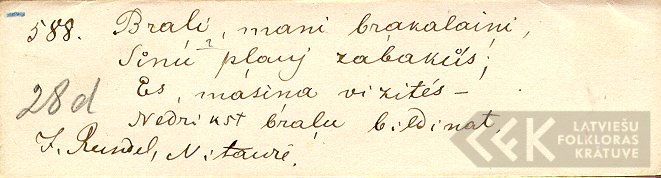 588. Brali, mani brakalaini,
Sinú pļauj zabakűs;
28d
Es, māsiņa vizitēs –
Nedrīkst brāļu bildinat.
J. Rundel, Nitaurē.
LATVIEŠU
FOLKLORAS
KRĀTUVE